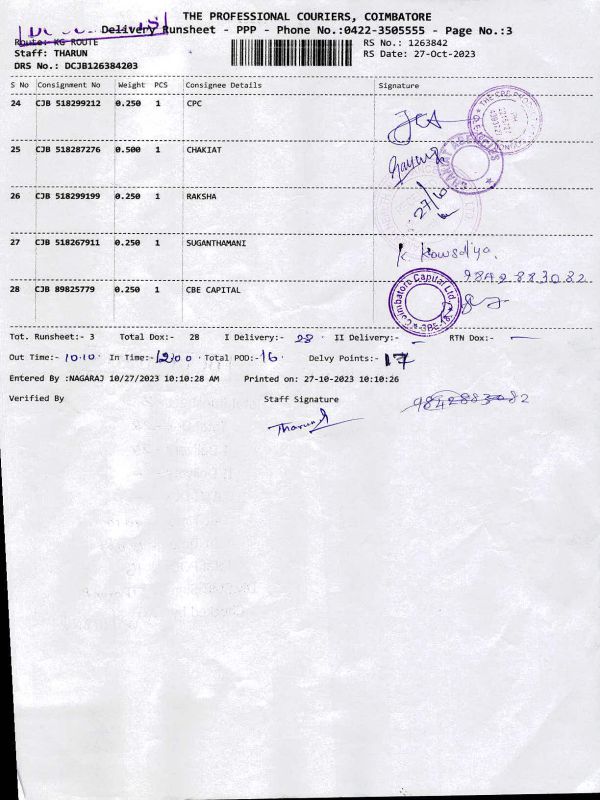 THE PROFESSIONAL COURIERS, COIMBATORE
Delivery Runsheet - PPP - Phone No.:0422-3505555 - Page No.:3
Route: KG ROUTE
RS No.: 1263842
Staff: THARUN
RS Date: 27-Oct-2023
DRS No.: DCJB126384203
S No Consignment No Weight PCS Consignee Details Signature
24 CJB 518299212 0.250 1 CPC
25 CJB 518287276 0.500 1 CHAKIAT
CHAKIAT AGENCIES
26 CJB 518299199 0.250 1 RAKSHA
27/10
27 CJB 518267911 0.250 1 SUGANTHAMANI K. Kowsalya.
9842883082
28 CJB 89825779 0.250 1 CBE CAPITAL
Coimbatore Capital Ltd. CBE-18.
Tot. Runsheet:- 3 Total Dox:- 28 I Delivery:- 28 II Delivery:- - RTN Dox:- -
Out Time:- 10.10 In Time:- 12:00 Total POD:- 16 Delvy Points:- 17
Entered By :NAGARAJ 10/27/2023 10:10:28 AM Printed on: 27-10-2023 10:10:26
Verified By Staff Signature 9842883082
Tharun